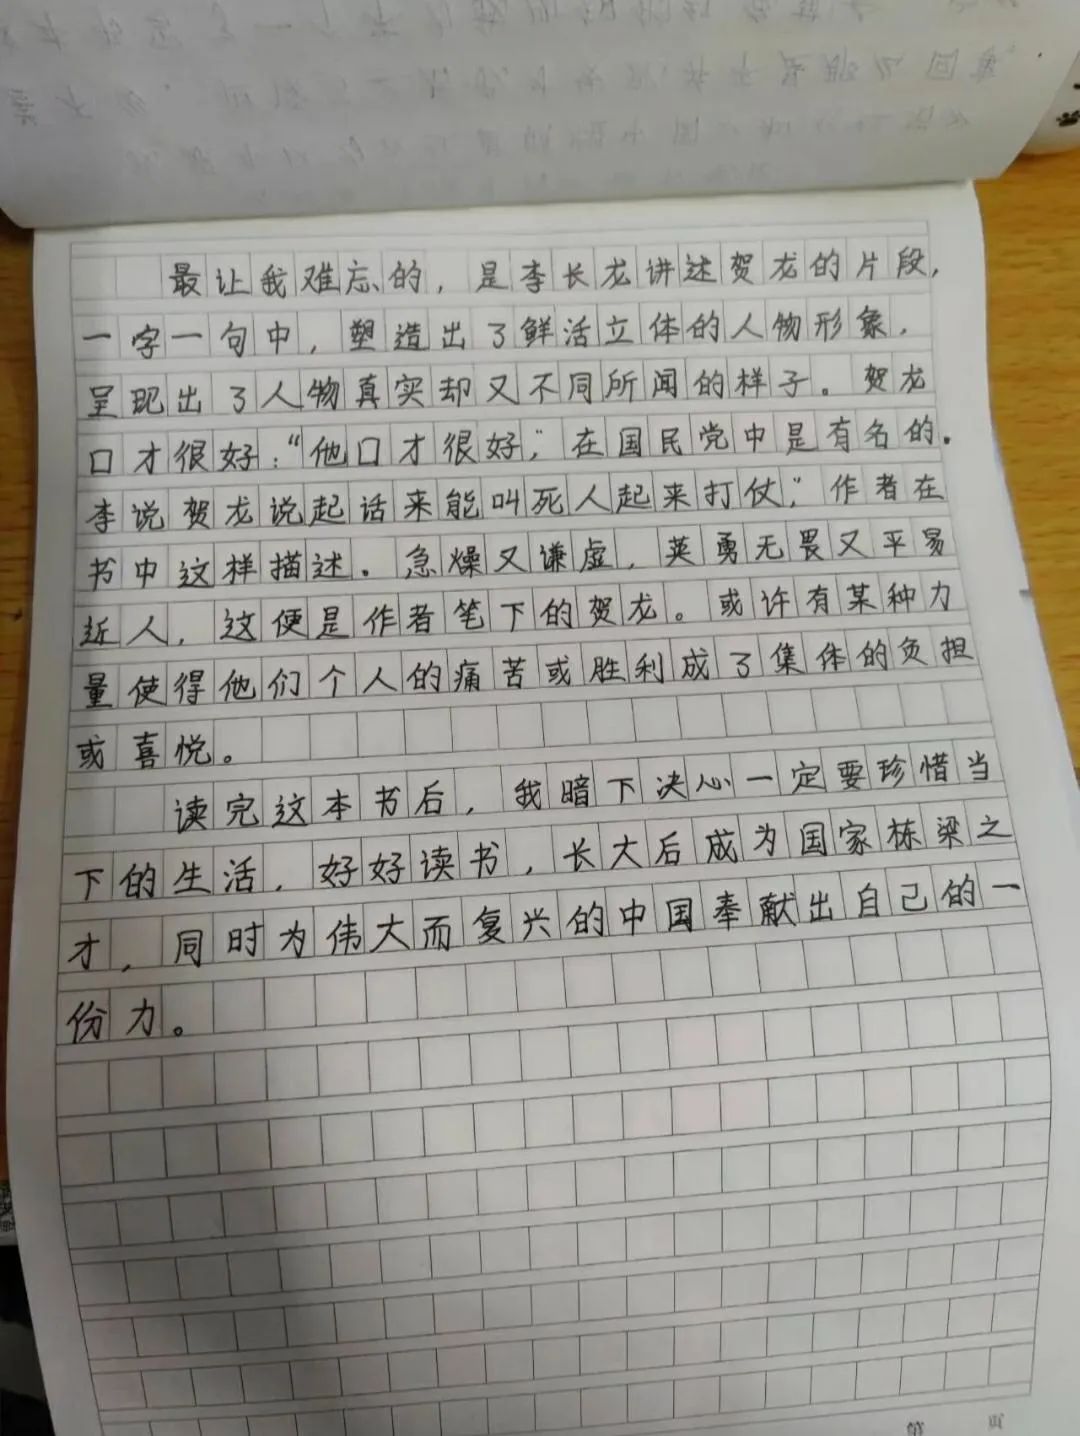 最让我难忘的，是李长龙讲述贺龙的片段，
一字一句中，塑造出了鲜活立体的人物形象，
呈现出了人物真实却又不同所闻的样子。贺龙
口才很好：“他口才很好，”在国民党中是有名的.
李说贺龙说起话来能叫死人起来打仗，”作者在
书中这样描述。急燥又谦虚，英勇无畏又平易
近人，这便是作者笔下的贺龙。或许有某种力
量使得他们个人的痛苦或胜利成了集体的负担
或喜悦。
读完这本书后，我暗下决心一定要珍惜当
下的生活，好好读书，长大后成为国家栋梁之
才，同时为伟大而复兴的中国奉献出自己的一
份力。
第 页